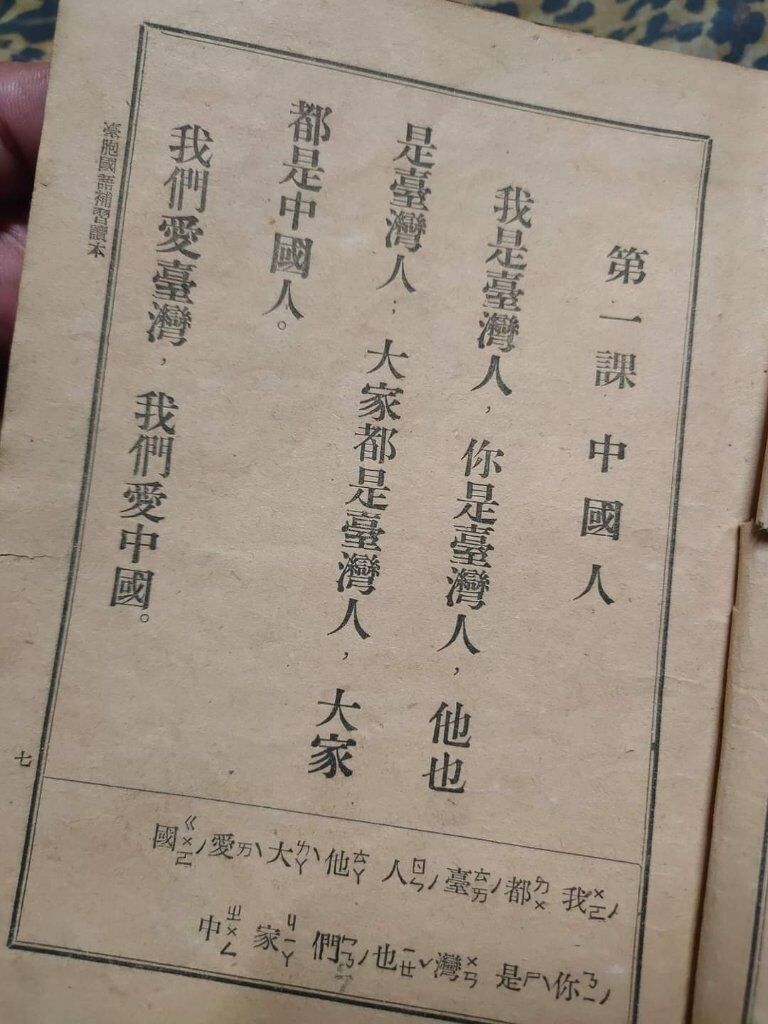 第一課 中國人
我是臺灣人，你是臺灣人，他也
是臺灣人；大家都是臺灣人，大家
都是中國人。
我們愛臺灣，我們愛中國。
我ㄨㄛˊ 都ㄉㄨ 臺ㄊㄞˊ 人ㄖㄣˊ 他ㄊㄚ 大ㄉㄚˋ 愛ㄞˋ 國ㄍㄨㄛˊ
你ㄋㄧˊ 是ㄕˋ 灣ㄨㄢ 也ㄧㄝˇ 們ㄇㄣˊ 家ㄐㄧㄚ 中ㄓㄨㄥ
臺胞國語補習讀本
七